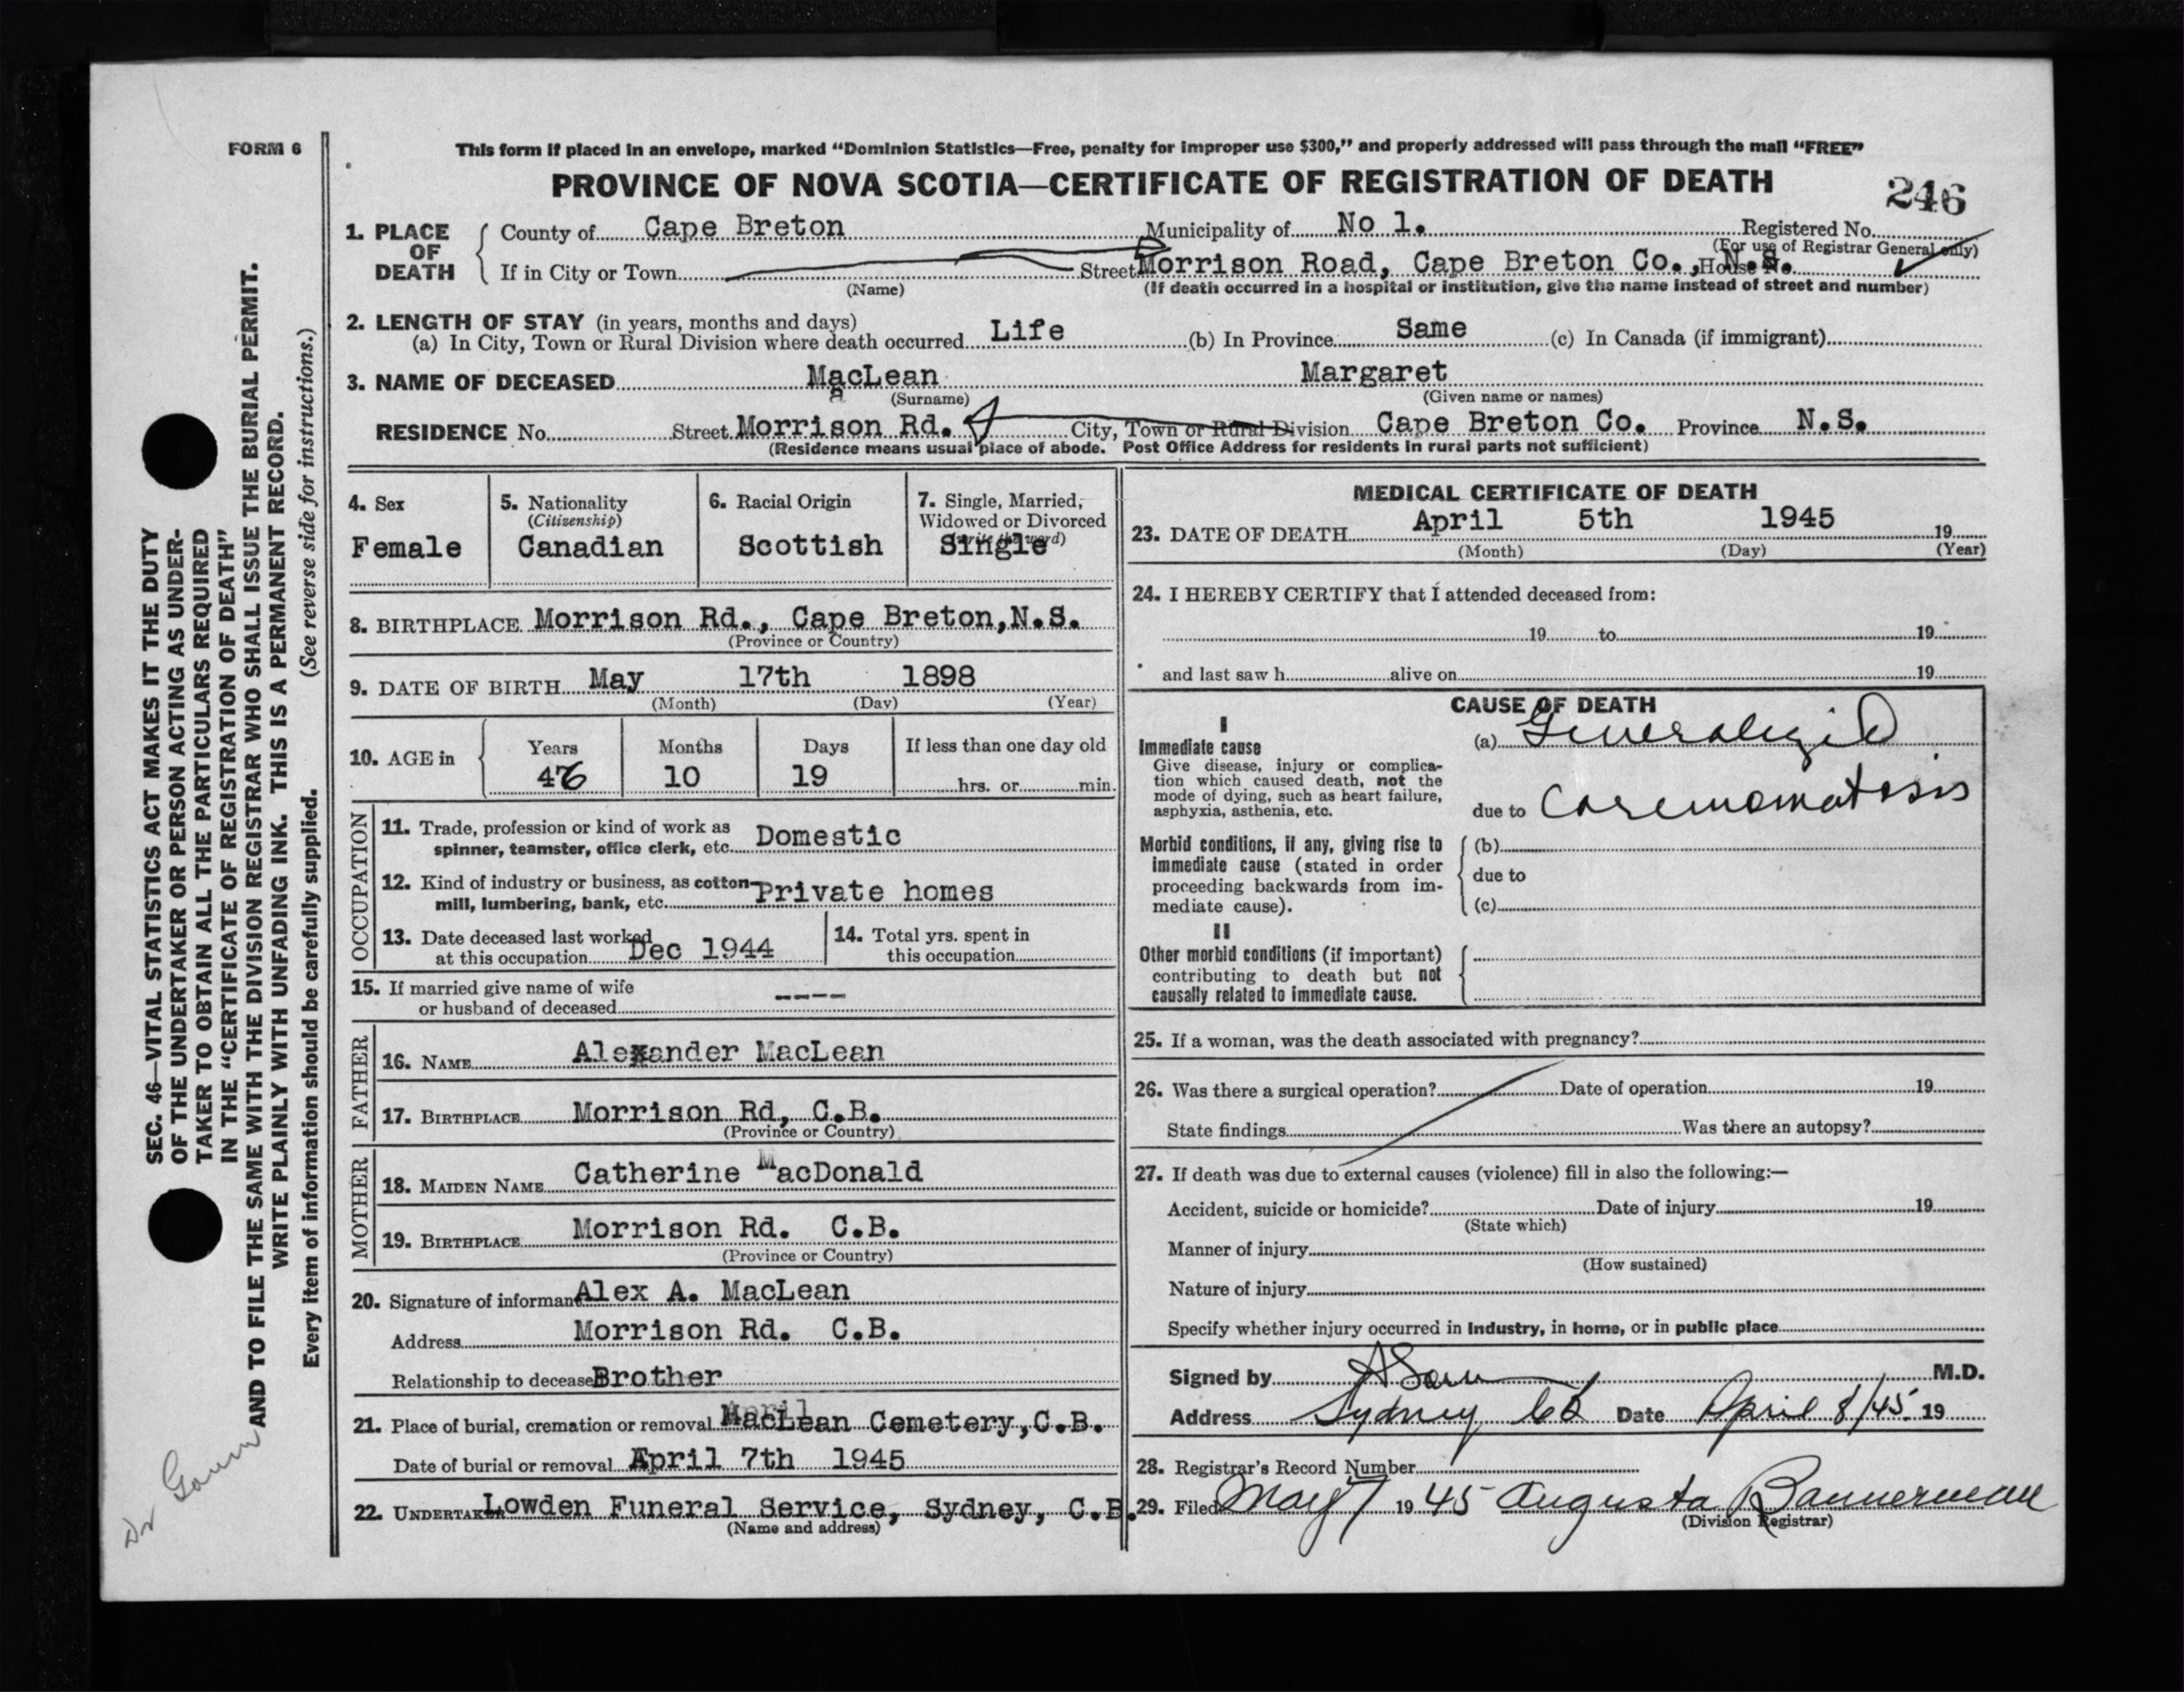 FORM 6
This form if placed in an envelope, marked “Dominion Statistics—Free, penalty for improper use $300,” and properly addressed will pass through the mail “FREE”
PROVINCE OF NOVA SCOTIA—CERTIFICATE OF REGISTRATION OF DEATH
246
1. PLACE OF DEATH
County of Cape Breton Municipality of No 1. Registered No.
(For use of Registrar General only)
If in City or Town Street Morrison Road, Cape Breton Co., N.S. House No.
(Name) (If death occurred in a hospital or institution, give the name instead of street and number)
2. LENGTH OF STAY (in years, months and days)
(a) In City, Town or Rural Division where death occurred Life (b) In Province Same (c) In Canada (if immigrant)
3. NAME OF DECEASED MacLean Margaret
(Surname) (Given name or names)
RESIDENCE No. Street Morrison Rd. City, Town or Rural Division Cape Breton Co. Province N.S.
(Residence means usual place of abode. Post Office Address for residents in rural parts not sufficient)
4. Sex
Female
5. Nationality
(Citizenship)
Canadian
6. Racial Origin
Scottish
7. Single, Married,
Widowed or Divorced
(write the word)
Single
8. BIRTHPLACE Morrison Rd., Cape Breton, N.S.
(Province or Country)
9. DATE OF BIRTH May 17th 1898
(Month) (Day) (Year)
10. AGE in
Years Months Days If less than one day old
46 10 19 hrs. or min.
OCCUPATION
11. Trade, profession or kind of work as
spinner, teamster, office clerk, etc. Domestic
12. Kind of industry or business, as cotton-
mill, lumbering, bank, etc. Private homes
13. Date deceased last worked
at this occupation Dec 1944
14. Total yrs. spent in
this occupation
15. If married give name of wife
or husband of deceased ----
FATHER
16. NAME Alexander MacLean
17. BIRTHPLACE Morrison Rd, C.B.
(Province or Country)
MOTHER
18. MAIDEN NAME Catherine MacDonald
19. BIRTHPLACE Morrison Rd. C.B.
(Province or Country)
20. Signature of informant Alex A. MacLean
Address Morrison Rd. C.B.
Relationship to deceased Brother
21. Place of burial, cremation or removal MacLean Cemetery, C.B.
Date of burial or removal April 7th 1945
22. UNDERTAKER Lowden Funeral Service, Sydney, C.B.
(Name and address)
MEDICAL CERTIFICATE OF DEATH
23. DATE OF DEATH April 5th 1945 19
(Month) (Day) (Year)
24. I HEREBY CERTIFY that I attended deceased from:
19 to 19
and last saw h alive on 19
CAUSE OF DEATH
I
Immediate cause
Give disease, injury or complica-
tion which caused death, not the
mode of dying, such as heart failure,
asphyxia, asthenia, etc.
(a) Generalized
due to Carcinomatosis
Morbid conditions, if any, giving rise to
immediate cause (stated in order
proceeding backwards from im-
mediate cause).
(b)
due to
(c)
II
Other morbid conditions (if important)
contributing to death but not
causally related to immediate cause.
25. If a woman, was the death associated with pregnancy?
26. Was there a surgical operation? Date of operation 19
State findings Was there an autopsy?
27. If death was due to external causes (violence) fill in also the following:—
Accident, suicide or homicide? Date of injury 19
(State which)
Manner of injury
(How sustained)
Nature of injury
Specify whether injury occurred in industry, in home, or in public place
Signed by M.D.
Address Sydney CB Date April 8/45 19
28. Registrar's Record Number
29. Filed May 7 1945 Augusta Bannerman
(Division Registrar)
SEC. 46—VITAL STATISTICS ACT MAKES IT THE DUTY
OF THE UNDERTAKER OR PERSON ACTING AS UNDER-
TAKER TO OBTAIN ALL THE PARTICULARS REQUIRED
IN THE “CERTIFICATE OF REGISTRATION OF DEATH”
AND TO FILE THE SAME WITH THE DIVISION REGISTRAR WHO SHALL ISSUE THE BURIAL PERMIT.
WRITE PLAINLY WITH UNFADING INK. THIS IS A PERMANENT RECORD.
Every item of information should be carefully supplied. (See reverse side for instructions.)
Dr